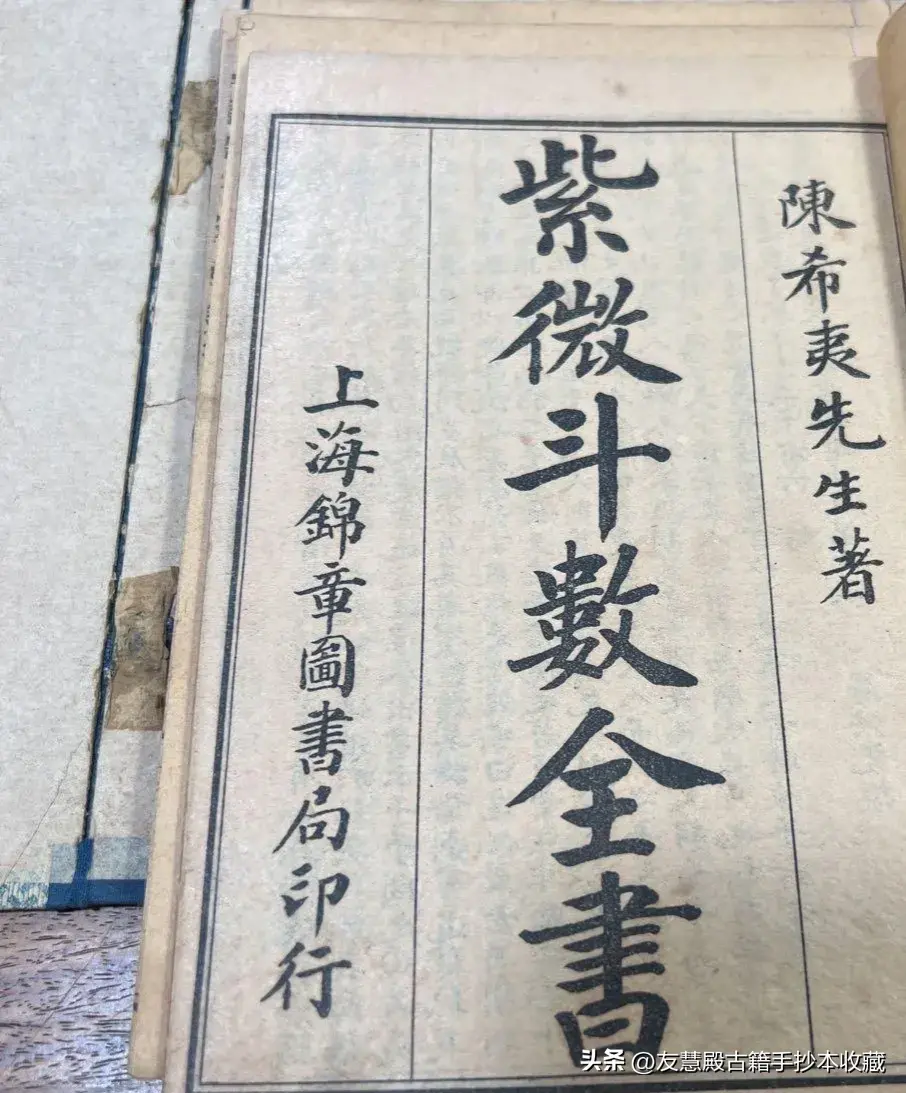 陳希夷先生著
紫微斗數全書
上海錦章圖書局印行
头条 @友慧殿古籍手抄本收藏